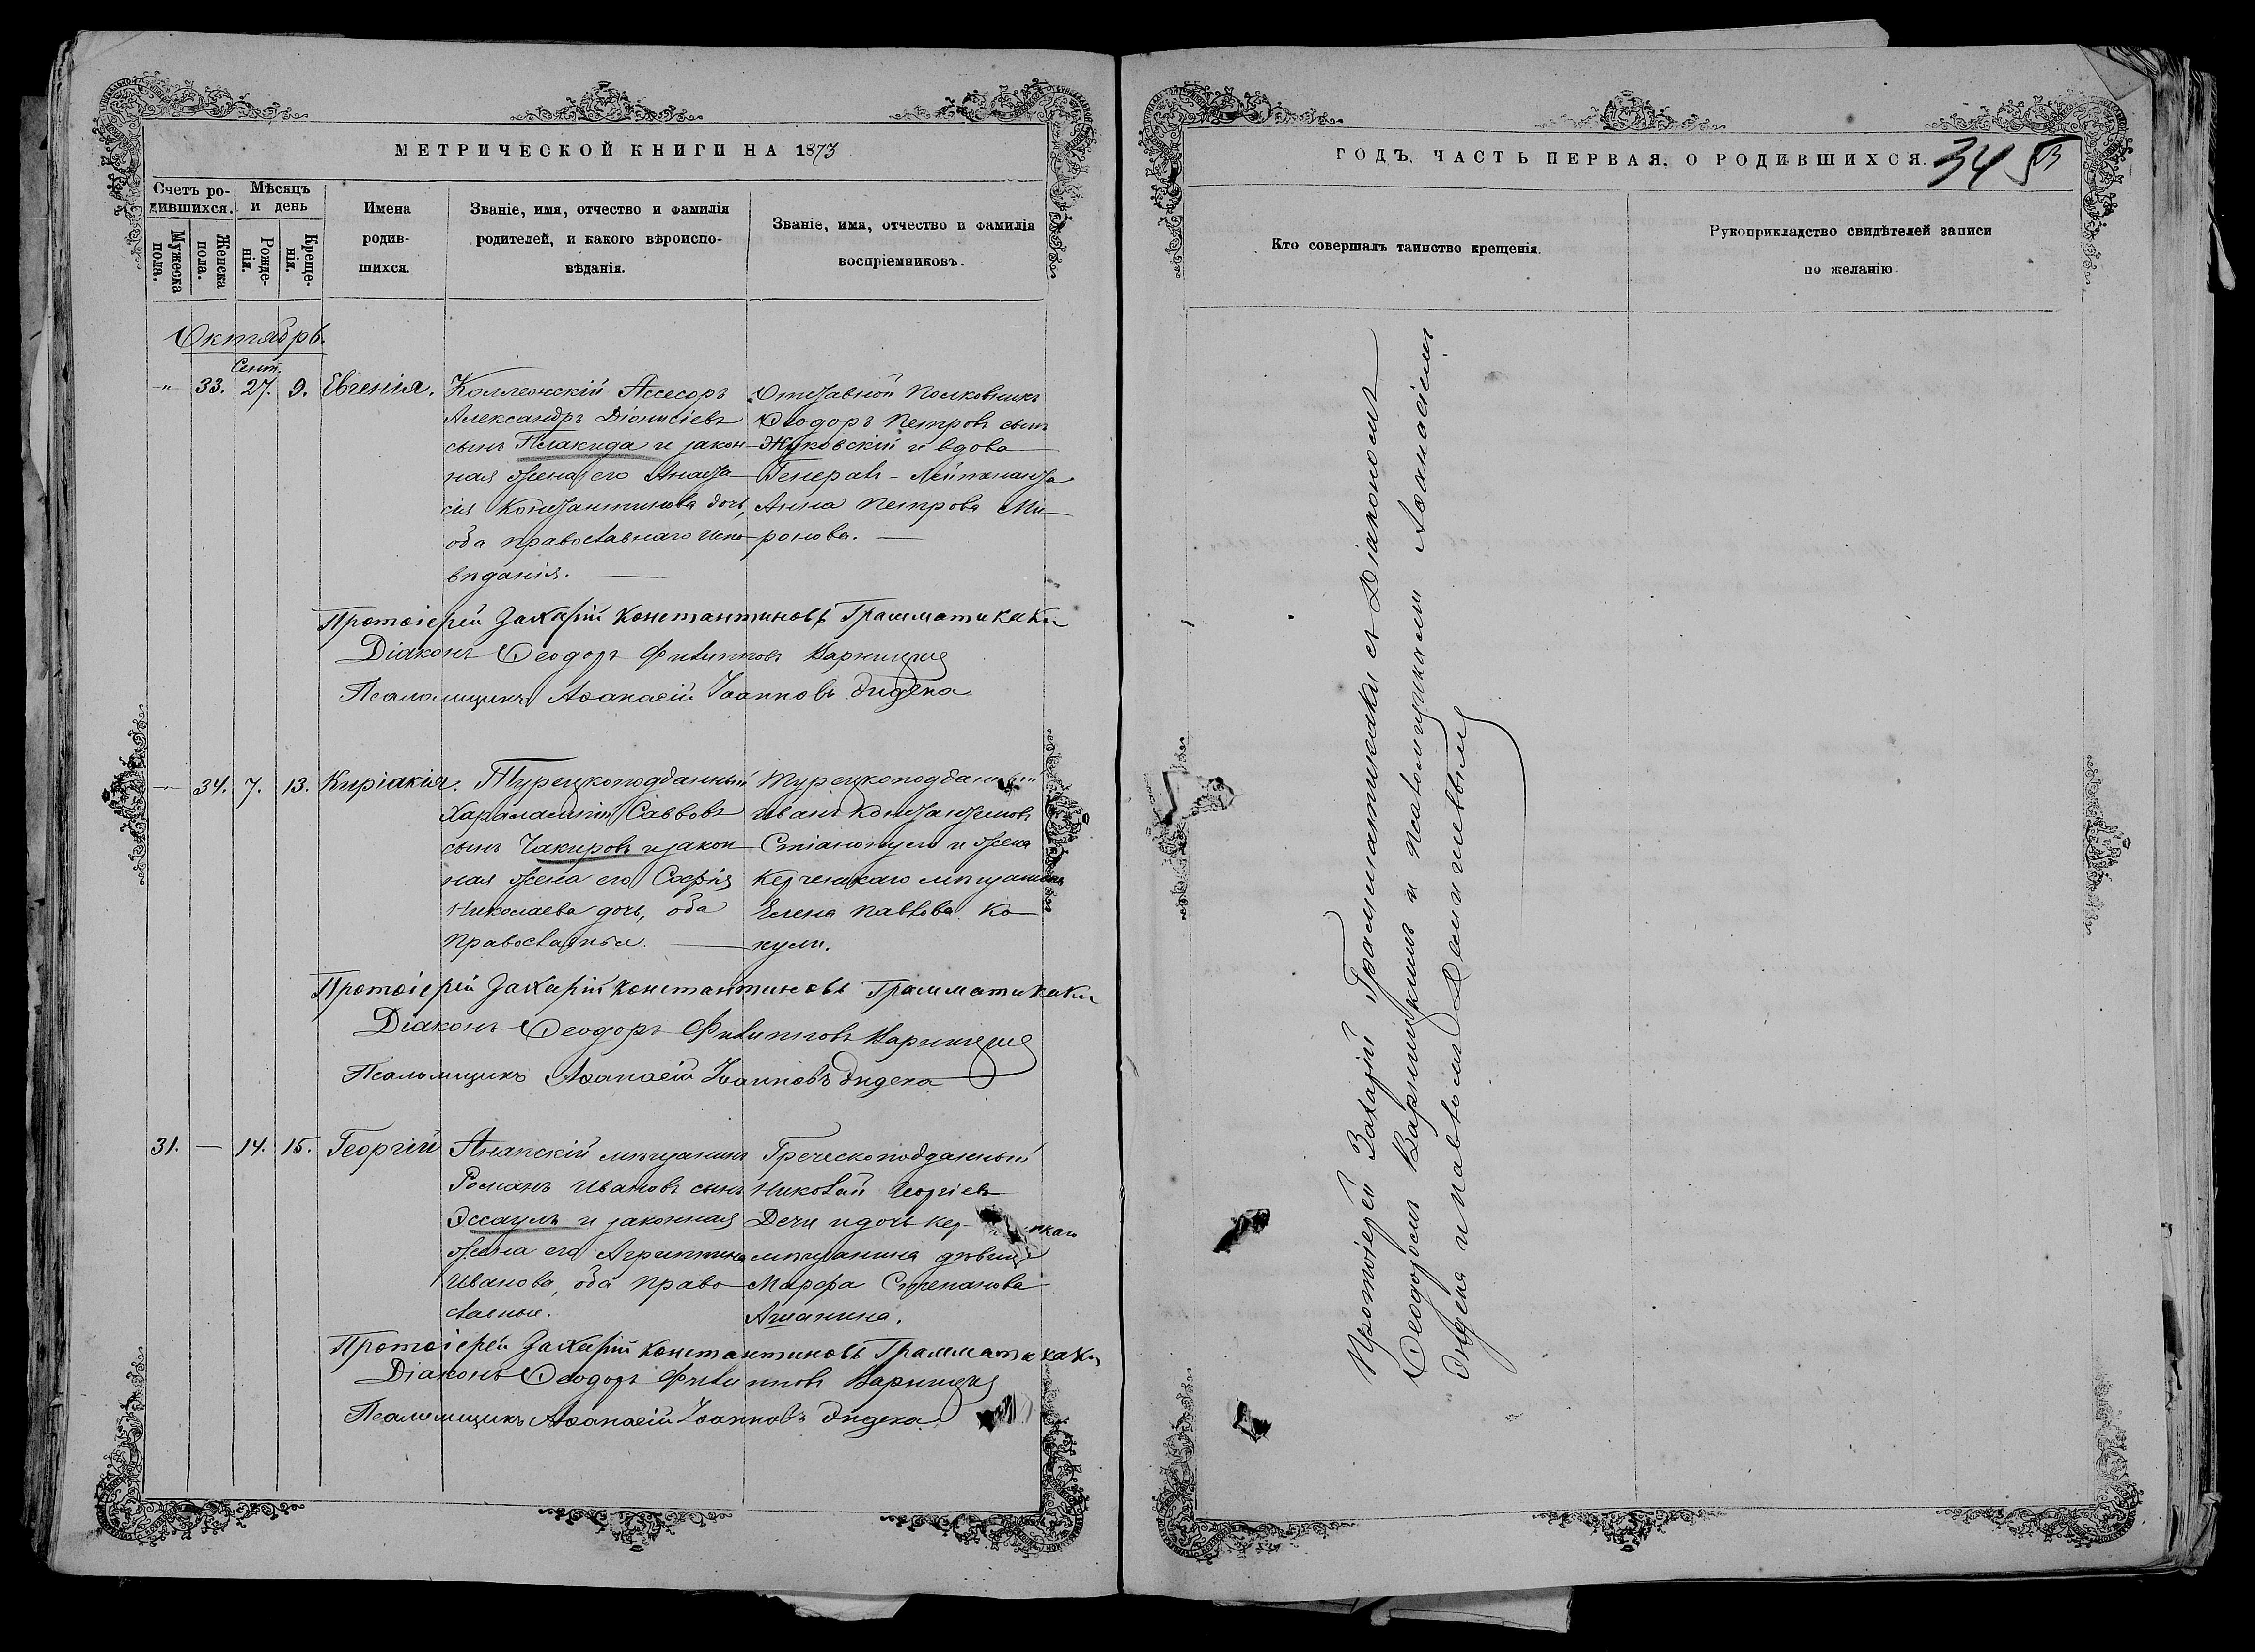 МЕТРИЧЕСКОЙ КНИГИ НА 1873
Счетъ ро-
дившихся.
Мѣсяцъ
и день
Мужеска
пола.
Женска
пола.
Рожде-
нія.
Креще-
нія.
Имена
родив-
шихся.
Званіе, имя, отчество и фамилія
родителей, и какого вѣроиспо-
вѣданія.
Званіе, имя, отчество и фамилія
воспріемниковъ.
Октябрь.
Сент.
-"- 33. 27. 9. Евгенія.
Коллежскій Ассесоръ
Александръ Діонисіевъ
сынъ Плакида и закон-
ная жена его Анаста-
сія Константинова дочь,
оба православнаго испо-
вѣданія.
Отставной Полковникъ
Ѳеодоръ Петровъ сынъ
Жуковскій и вдова
Генералъ-Лейтенанта
Анна Петрова Ми-
ронова.
Протоіерей Захарій Константиновъ Грамматикаки
Діаконъ Ѳеодоръ Филипповъ
Псаломщикъ Аѳанасій Іоанновъ Эндека
34. 7. 13. Киріакія.
Турецкоподданный
Харалампій Саввовъ
сынъ Чакировъ и закон-
ная жена его Софія
Николаева дочь, оба
православные.
Турецкоподданный
Иванъ Константиновъ
и жена
Керченскаго мѣщанина
Елена Павлова Ко-
кули.
Протоіерей Захарій Константиновъ Грамматикаки
Діаконъ Ѳеодоръ Филипповъ
Псаломщикъ Аѳанасій Іоанновъ Эндека
31. — 14. 15. Георгій
Анапскій мѣщанинъ
Романъ Ивановъ сынъ
Эссаулъ и законная
жена его Агриппина
Иванова, оба право-
славные.
Греческоподданный
Николай Георгіевъ
Дечи и дочь Кер-
мѣщанина дѣвица
Марфа Степанова
Ашанина.
Протоіерей Захарій Константиновъ Грамматикаки
Діаконъ Ѳеодоръ Филипповъ
Псаломщикъ Аѳанасій Іоанновъ Эндека
ГОДЪ, ЧАСТЬ ПЕРВАЯ. О РОДИВШИХСЯ.
34
Кто совершалъ таинство крещенія.
Рукоприкладство свидѣтелей записи
по желанію.
Протоіерей Захарій Грамматикаки съ Діакономъ
Ѳеодоромъ Варницкимъ и псаломщиками Аѳанасіемъ
Эндека и Павломъ